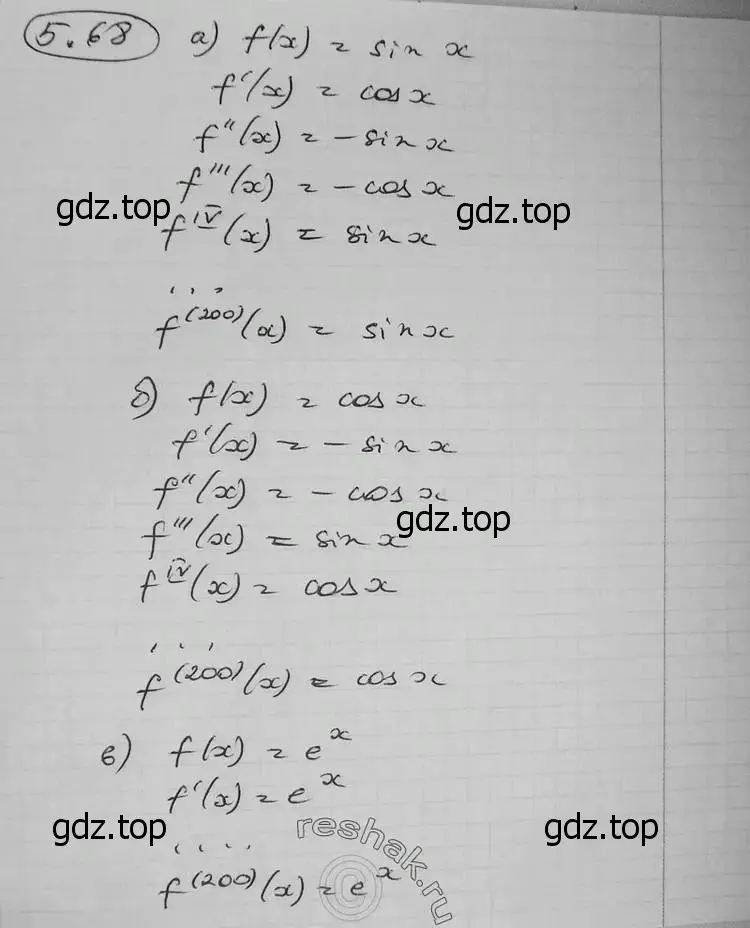 5.68 а) f(x) = sin x
f'(x) = cos x
f''(x) = -sin x
f'''(x) = -cos x
gdz.top gdz.top
f^IV(x) = sin x
...
f^(200)(x) = sin x
б) f(x) = cos x
f'(x) = -sin x
f''(x) = -cos x
gdz.top
f'''(x) = sin x
f^IV(x) = cos x
...
f^(200)(x) = cos x
в) f(x) = e^x
f'(x) = e^x
gdz.top gdz.top
reshak.ru
....
f^(200)(x) = e^x